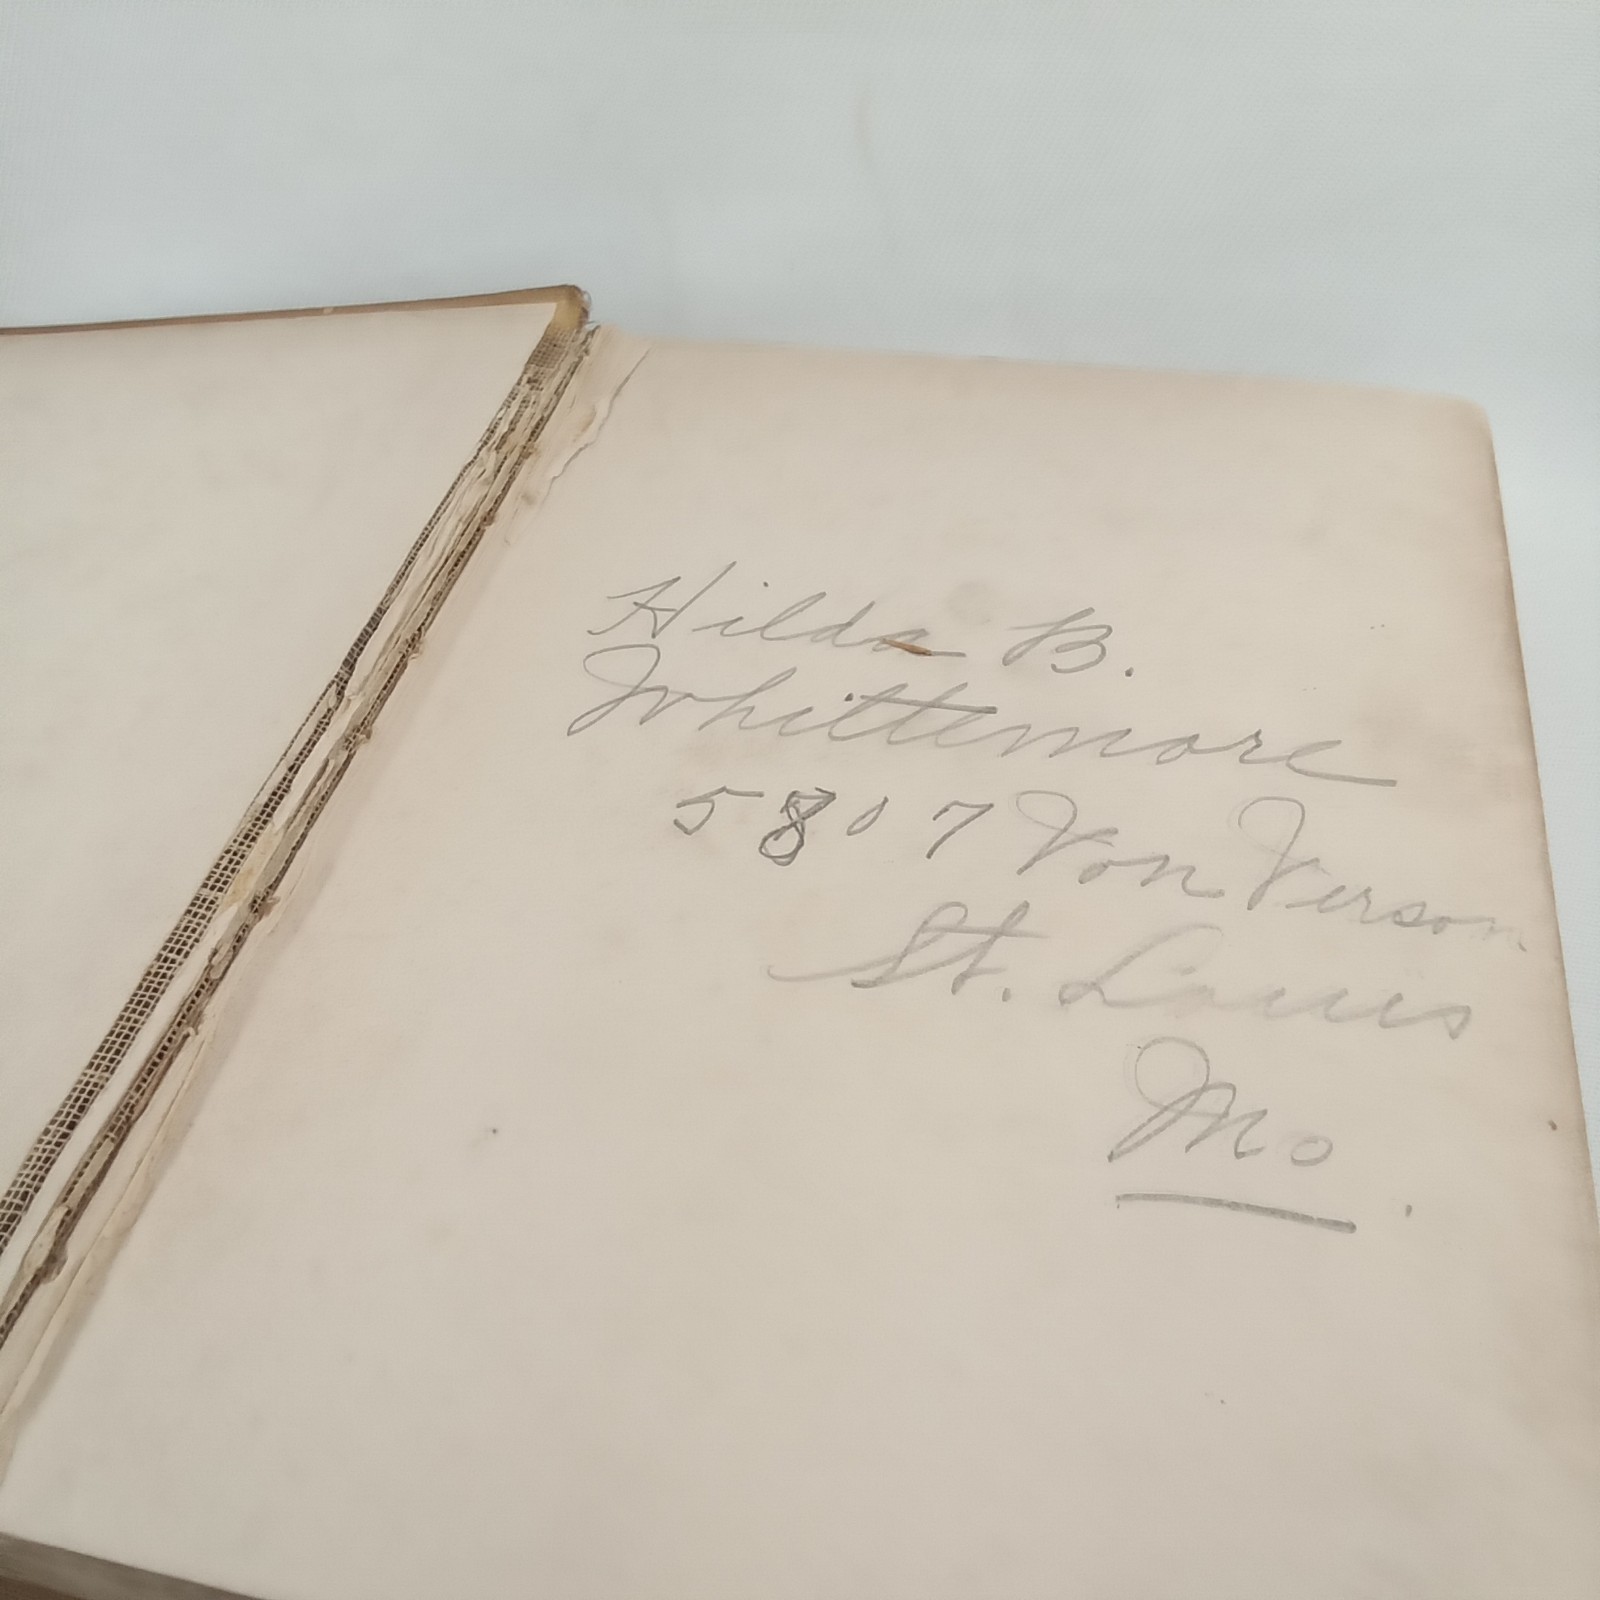 Hilda B.
Whittemore
5807 Von Verson
St. Louis
Mo.